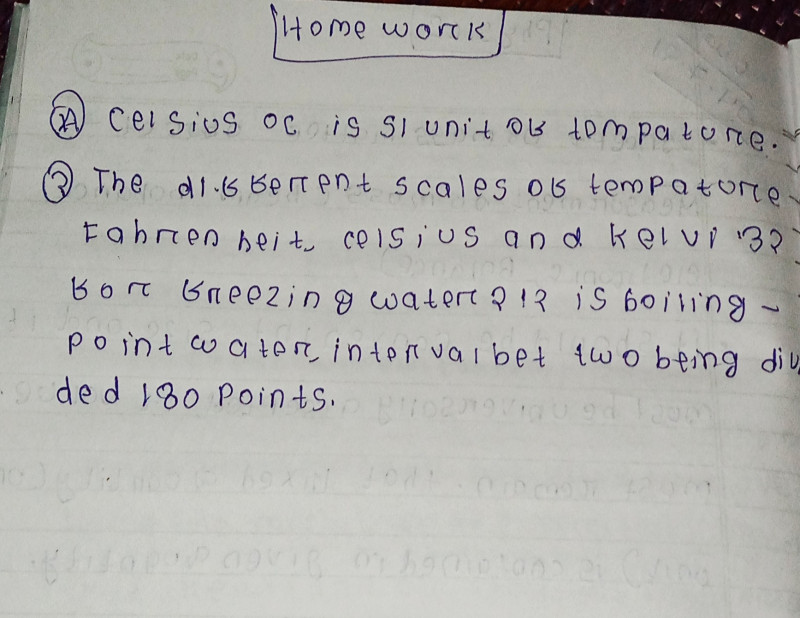 Home work
2A Celsius oc is SI unit of tompature.
3 The different scales of tempature
Fahrenheit, celsius and kelvi 32
for freezing water 212 is boiling -
point water, interval bet two being div
ded 180 points.